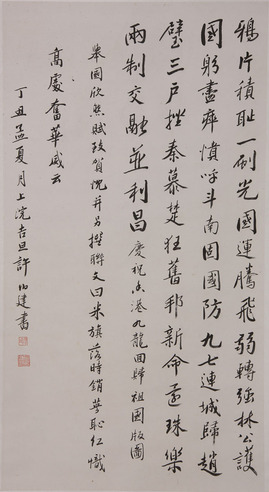 鴉片積恥一刷光國運騰飛弱轉強林公護
國躬盡瘁憤呼斗南固國防九七連城歸趙
璧三戶挫秦慕楚狂舊邦新命還珠樂
兩制交融並利昌慶祝香港九龍回歸祖國版圖
舉國欣然賦致賀忱并另撰聯文曰米旗落時銷夢恥紅幟
高處奮華威云
丁丑孟夏月上浣吉旦許伯建書